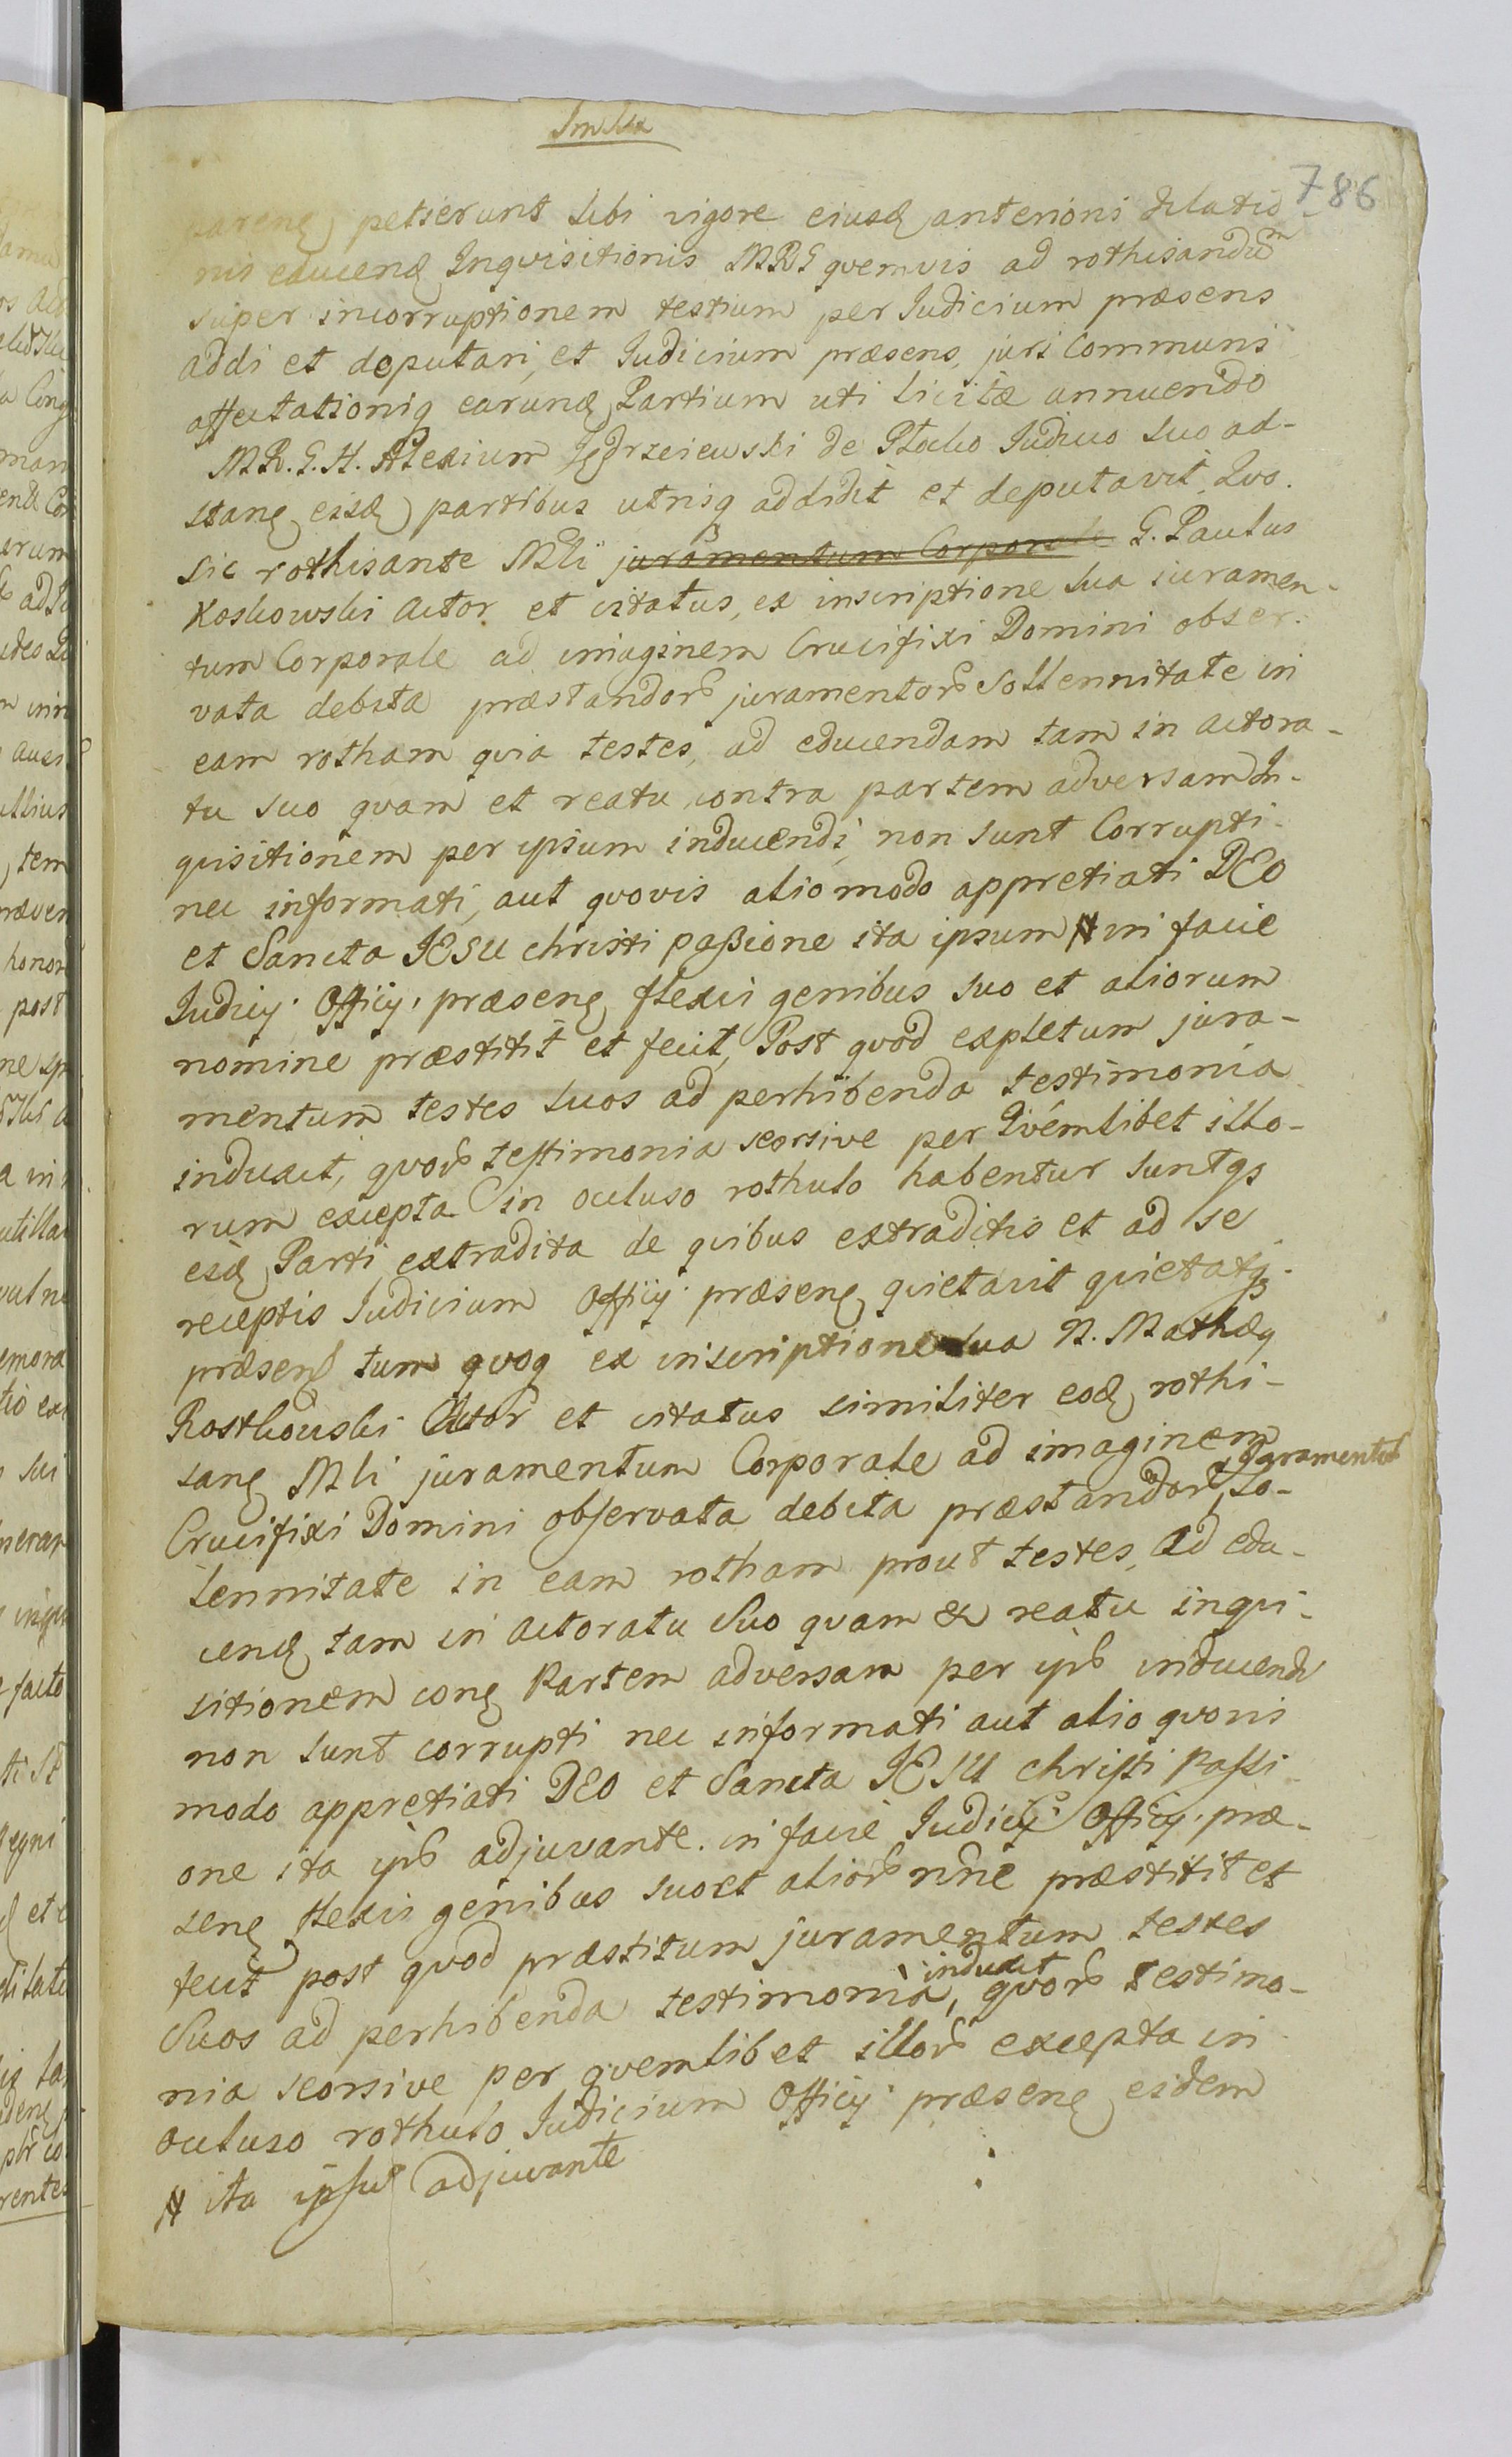 786
petierunt sibi vigore eiusd anterioris dilatio-
nis educend Inqvisitionis MRS qvemvis ad rothisandum
super incorruptionem testium per Judicium præsens
addi et deputari, et Judicium præsens, juri Communi
affectationiq earund Partium uti licitæ annuendo
MR. G. H. Alexium Jędrzeiewski de Płocko Judicio suo ad-
stang eisd partibus utrisq addidit et deputavit, Qvo.
sic rothisante Mli juramentum Corporale G. Paulus
Koskowski Actor et citatus, ex inscriptione sua iuramen-
tum Corporale ad imaginem Crucifixi Domini obser-
vata debita præstandor juramentor Sollennitate in
eam rotham qvia testes, ad educendam tam in actora-
tu suo qvam et reatu, contra partem adversam In-
quisitionem per ipsum inducendi, non sunt Corrupti
nec informati, aut qvovis alio modo appretiati DEO
et Sancta JESU christi paßione ita ipsum # in facie
Judicij Officij præseng flexis genibus suo et aliorum
nomine præstitit et fecit, Post qvod expletum jura-
mentum testes suos ad perhibenda testimonia
induxit, qvor testimonia seorsive per Qvemlibet illo-
rum excepta in occluso rothulo habentur suntqs
eisd Parti extradita de qvibus extraditis et ad se
receptis Judicium Officij præseng qvietavit qvietatqs
præsend tum qvoq ex inscriptione sua N. Mathæq
Rostkowski Actor et citatus similiter eod rothi-
sang Mli juramentum Corporale ad imaginem
Crucifixi Domini observata debita præstandor Juramentor So-
lennitate in eam rotham prout testes, ad edu-
cend tam in actoratu Suo qvam et reatu inqvi-
sitionem cong Partem adversam per ips inducendi
non sunt corrupti nec informati aut alio qvovis
modo appretiati DEO et Sancta JESU christi passi
one ita ips adjuvante. in facie Judicij Officij præ-
seng flexis genibus suo et alior nne præstitit et
fecit post qvod præstitum juramentum testes
Suos ad perhibenda testimonia, induxit qvor testimo-
nia seorsive per qvemlibet illor excepta in
occluso rothulo Judicium Officij præseng eidem
# ita ipsum adjuvante